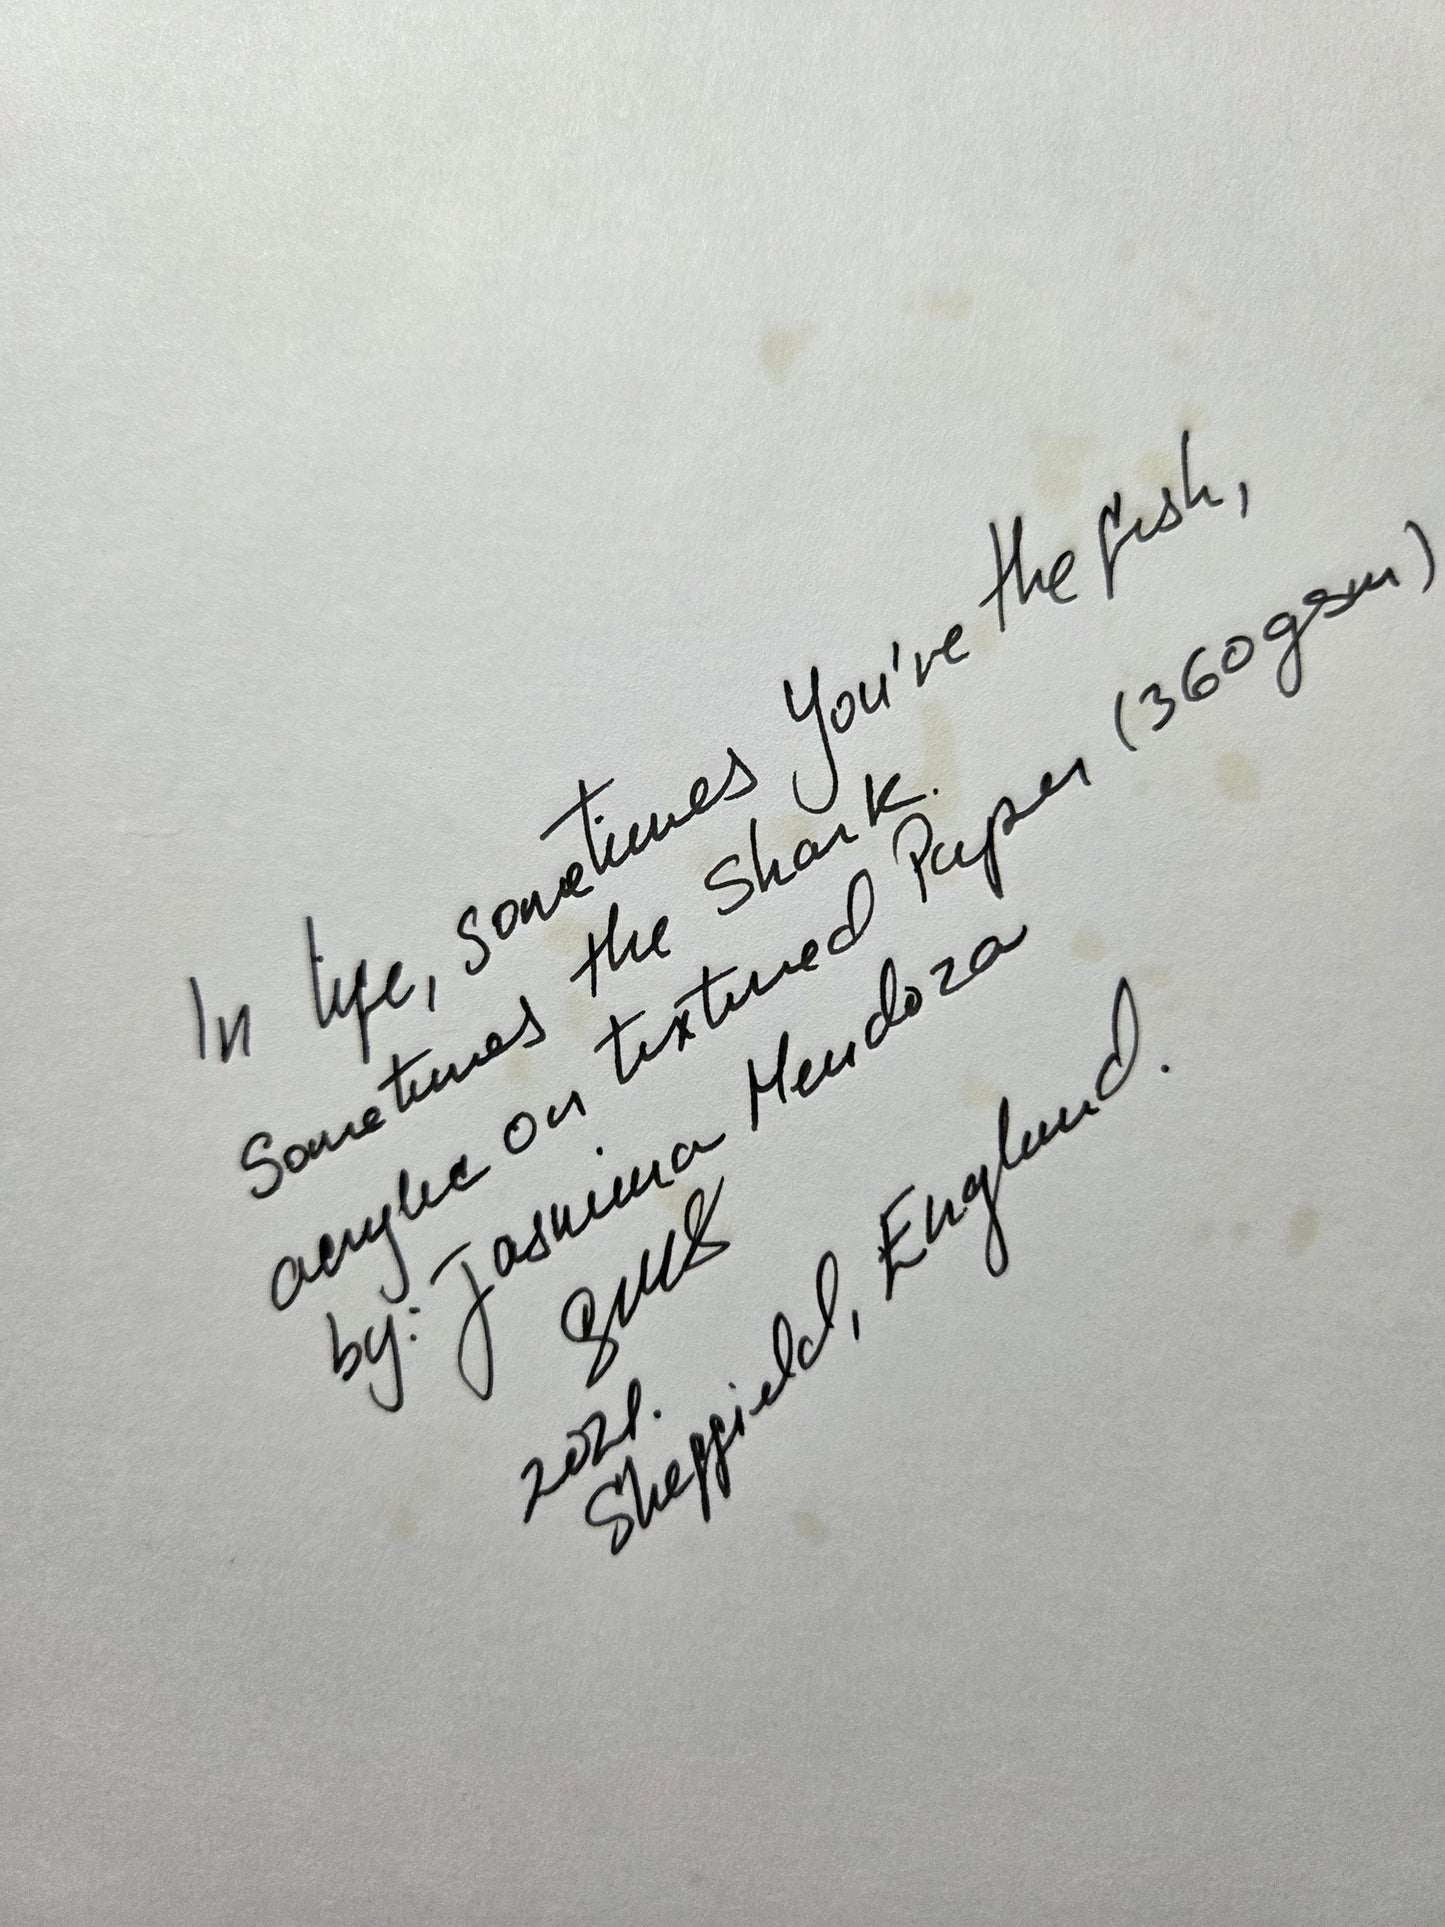 In life, sometimes You've the fish,
Sometimes the Shark.
acrylic on textured Paper (360gsm)
by: Jasmina Mendoza
2021.
Sheffield, England.